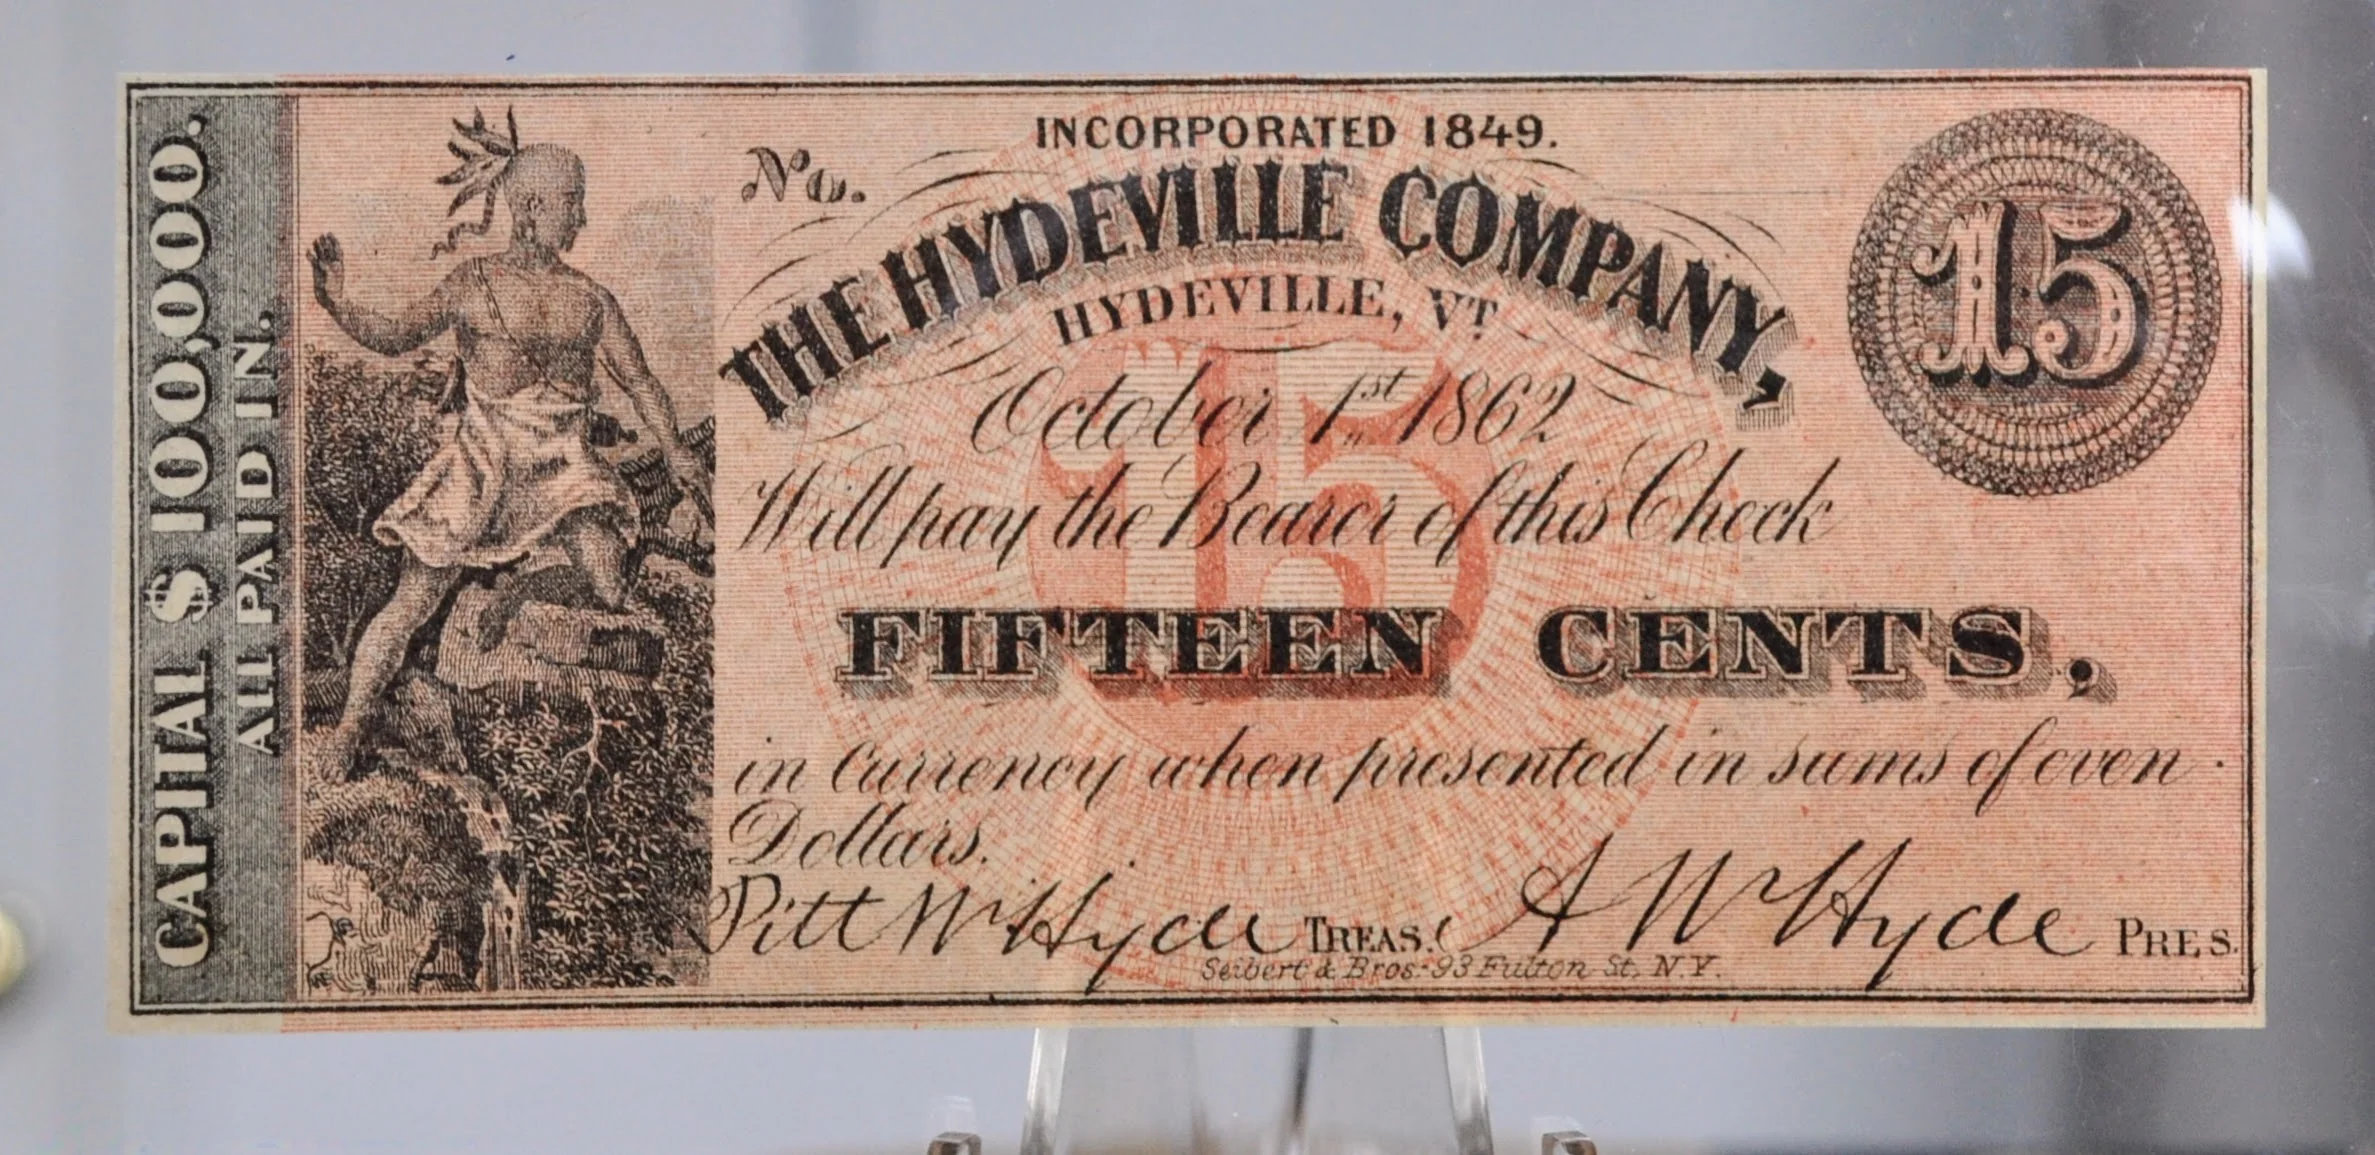 CAPITAL $ 100,000.
ALL PAID IN.
No.
INCORPORATED 1849.
THE HYDEVILLE COMPANY,
HYDEVILLE, VT
15
October 1st 1862
15
Will pay the Bearer of this Check
FIFTEEN CENTS,
in Currency when presented in sums of even
Dollars.
Pitt W. Hyde TREAS. A W Hyde PRES.
Seibert & Bros. 93 Fulton St. N.Y.